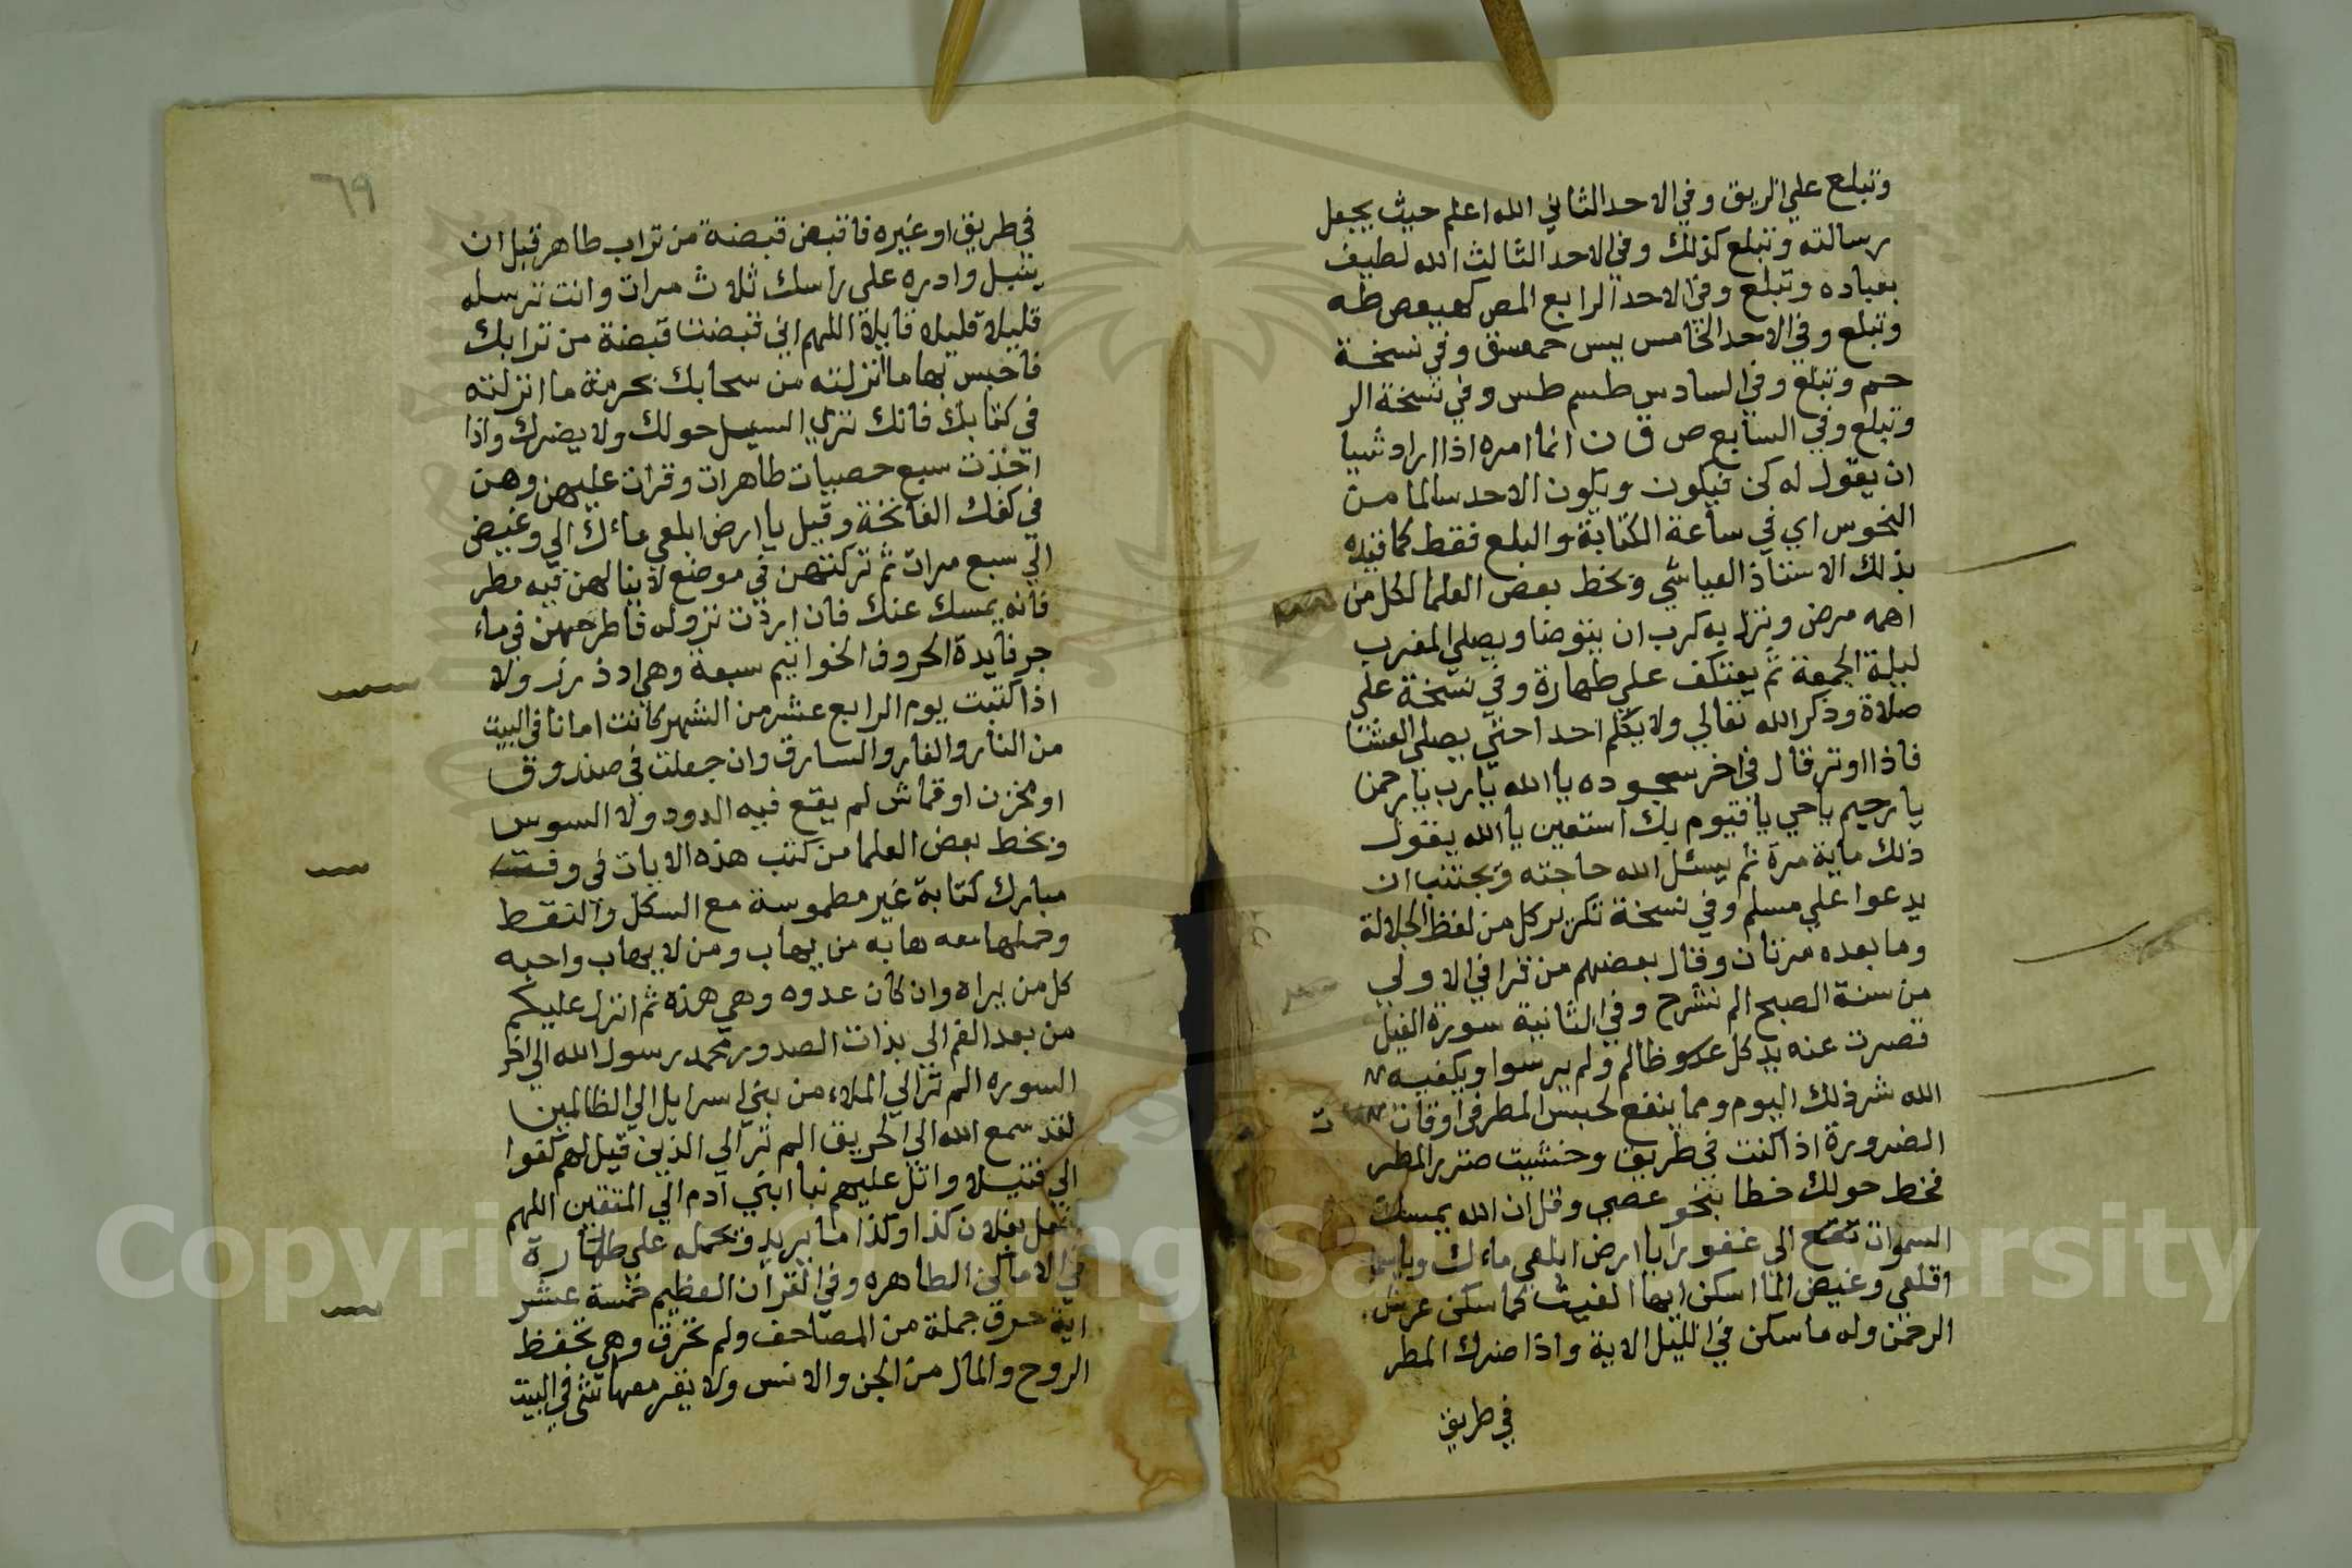 وتبلع علي الريق وفي الاحد الثاني الله اعلم حيث يجعل
رسالته وتبلع كذلك وفي الاحد الثالث الله لطيف
بعباده وتبلع وفي الاحد الرابع المص كهيعص طه
وتبلع وفي الاحد الخامس يس حمعسق وفي نسخة
حم وتبلع وفي السادس طسم طس وفي نسخة الر
وتبلع وفي السابع ص ق ن انما امره اذا اراد شيا
ان يقول له كن فيكون ويكون الاحد سالما من
النحوس اي في ساعة الكتابة والبلع فقط كما قيده
بذلك الاستاذ العياشي وبخط بعض العلما لكل من
اهمه مرض ونزل به كرب ان يتوضا ويصلي المغرب
ليلة الجمعة ثم يعتكف علي طهارة وفي نسخة علي
صلاة وذكر الله تعالي ولا يكلم احدا حتي يصلي العشا
فاذا اوتر قال في اخر سجوده يا الله يارب يارحمن
يا رحيم ياحي يا قيوم بك استعين يا الله يقول
ذلك ماية مرة ثم يسئل الله حاجته ويجتنب ان
يدعوا علي مسلم وفي نسخة تكرير كل من لفظ الجلالة
وما بعده مرتان وقال بعضهم من قرا في الاولي
من سنة الصبح الم نشرح وفي الثانية سورة الفيل
قصرت عنه يد كل عدو وظالم ولم ير سوا ويكفيه
الله شر ذلك اليوم ومما ينفع لحبس المطر في اوقات
الضرورة اذا كنت في طريق وخشيت ضرر المطر
فخط حولك خطا بنحو عصي وقل ان الله يمسك
السموات الي غفورا يا ارض ابلعي ماءك ويا
اقلعي وغيض الما اسكن ايها الغيث كما سكن عرش
الرحمن وله ما سكن في الليل الاية واذا ضرك المطر
في طريق
٦٩
في طريق او غيره فاقبض قبضة من تراب طاهر قبل ان
يتبل وادره علي راسك ثلاث مرات وانت ترسله
قليلا قليلا قايلا اللهم اني قبضت قبضة من ترابك
فاحبس بها ما انزلته من سحابك بحرمة ما انزلته
في كتابك فانك تري السيل حولك ولا يضرك واذا
اخذت سبع حصيات طاهرات وقرات عليهن وهن
في كفك الفاتحة وقيل يا ارض ابلعي ماءك الي وغيض
الي سبع مرات ثم تركتهن في موضع لا ينالهن فيه مطر
فانه يمسك عنك فان اردت نزوله فاطرحهن في ماء
جر فايدة الحروف الخواتيم سبعة وهي ا د ذ ر ز و لا
اذا كتبت يوم الرابع عشر من الشهر كانت امانا في البيت
من النار والفار والسارق وان جعلت في صندوق
او مخزن او قماش لم يقع فيه الدود ولا السوس
وبخط بعض العلما من كتب هذه الايات في وقت
مبارك كتابة غير مطموسة مع الشكل والنقط
وحملها معه هابه من يهاب ومن لا يهاب واحبه
كل من يراه وان كان عدوه وهي هذه ثم انزل عليكم
من بعد الغم الي بذات الصدور محمد رسول الله الي اخر
السوره الم تر الي الملاء من بني اسرايل الي الظالمين
لقد سمع الله الي الحريق الم تر الي الذين قيل لهم كفوا
الي فتيلا واتل عليهم نبا ابني آدم الي المتقين اللهم
بفلان كذا وكذا ما يريد وتحمله علي طهارة
في الاماكن الطاهره وفي القرآن العظيم خمسة عشر
اية حرق جملة من المصاحف ولم تحرق وهي تحفظ
الروح والمال من الجن والانس ولا يفر معها شي في البيت
Copyright © King Saud University